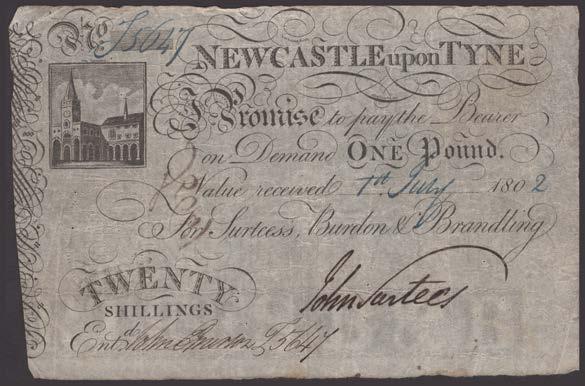 No. J5647
NEWCASTLE upon TYNE
I Promise to pay the Bearer
on Demand ONE Pound.
Value received 1st July 1802
For Surtees, Burdon & Brandling
John Surtees
TWENTY
SHILLINGS
Entd. John J5647